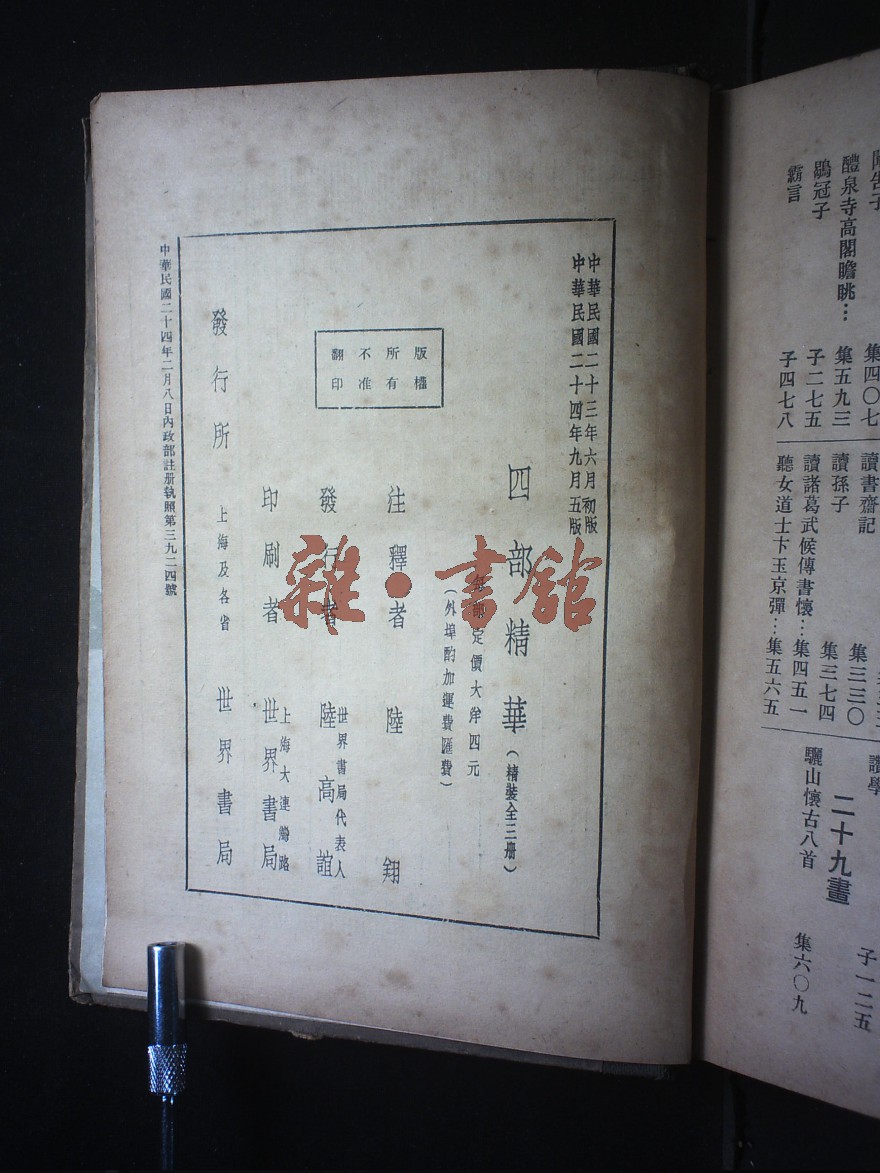 霸言
子四七八
鶡冠子
子二七五
醴泉寺高閣瞻眺…
集五九三
集四〇七
聽女道士卞玉京彈…集五六五
讀諸葛武候傳書懷…集四五一
讀孫子
集三七四
讀書齋記
集三三〇
二十九畫
驪山懷古八首
集六〇九
子一二五
中華民國二十三年六月初版
中華民國二十四年九月五版
四部精華(精裝全三册)
定價大洋四元
(外埠酌加運費匯費)
版權
所有
不准
翻印
注釋者 陸翔
發行者 陸高誼
世界書局代表人
印刷者 世界書局
上海大連灣路
發行所 上海及各省 世界書局
中華民國二十四年二月八日內政部註册執照第三九二四號
雜·書館